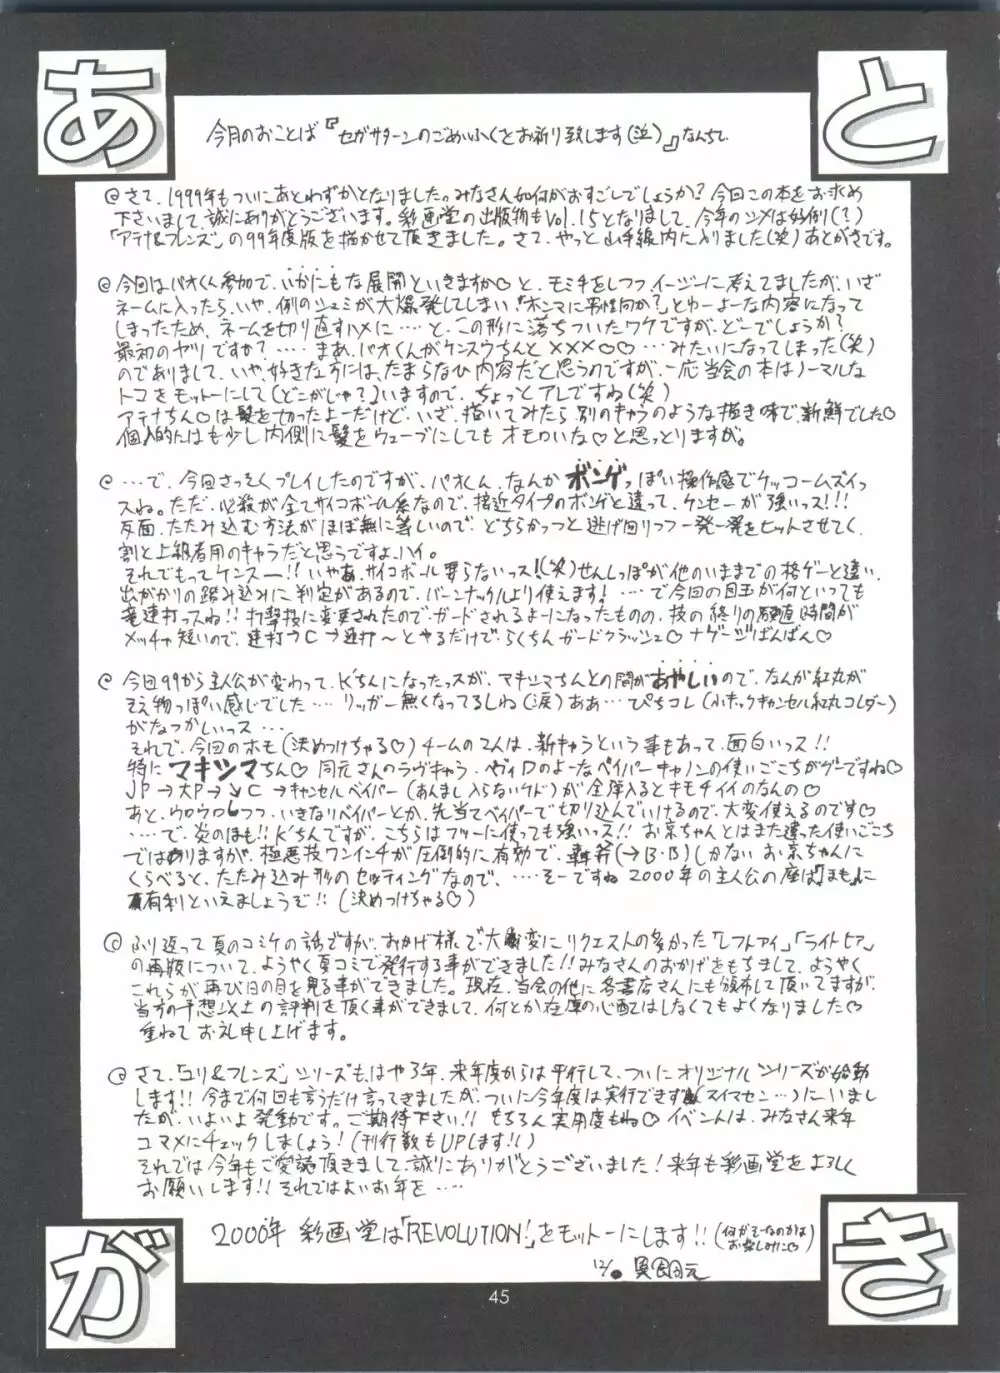 あとがき
今月のおことば『セガサターンのごめいふくをお祈り致します(泣)』なんちて
@さて、1999年もついにあとわずかとなりました。みなさん如何がおすごしでしょうか？今回この本をお求め
下さいまして、誠にありがとうございます。彩画堂の出版物もVol.15となりまして、今年のシメは好例(？)
「アテナ&フレンズ」の99年度版を描かせて頂きました。さて、やっと山手線内に入りました(笑)あとがきです。
@今回はバオくん参加で、いかにもな展開といきますか♡と、モミ手をしつつイージーに考えてましたが、いざ
ネームに入ったら、いや、例のシュミが大爆発してしまい「ホンマに男性向か？」とゆーよーな内容になって
しまったため、ネームを切り直すハメに‥‥と、この形に落ちついたワケですが、どーでしょうか？
最初のヤツですか？‥‥まあ、バオくんがケンスウちんと×××♡♡‥‥みたいになってしまった(笑)
のでありまして、いや、好きな方には、たまらなひ内容だと思うのですが、一応当会の本はノーマルな
トコをモットーにして(どこがじゃ？)いますので、ちょっとアレですね(笑)
アテナちん♡は髪を切ったよーだけど、いざ、描いてみたら別のキャラのような描き味で、新鮮でした♡
個人的にはも少し内側に髪をウェーブにしてもオモロいな♡と思っとりますが。
@‥‥で、今回さっそくプレイしたのですが、バオくん、なんかボンゲっぽい操作感でケッコームズイっ
スね。ただ、必殺が全てサイコボール系なので、接近タイプのボンゲと違って、ケンセーが強いっス!!!
反面、たたみ込む方法がほぼ無に等しいので、どちらかっつと逃げ回りつつ一発一発をヒットさせてく、
割と上級者用のキャラだと思うですよ、ハイ。
それでもってケンスー!!いやあ、サイコボール要らないっス!(笑)せんしっぽが他のいままでの格ゲーと違い、
出がかりの踏み込みに判定があるので、バーンナックルより使えます！‥‥で今回の目玉が何といっても
竜連打っスね!!打撃技に変更されたので、ガードされるよーになったものの、技の終りの硬直時間が
メッチャ短いので、連打→C→連打〜とやるだけで、らくちんガードクラッシュ♡ナゲージばんばん♡
@今回99から主人公が変わって、K'ちんになったっスが、マキシマちんとの間があやしいので、なんか紅丸が
そえ物っぽい感じでした‥‥リッガー無くなってるしね(涙)ああ…ぴちコレ(小キックキャンセル紅丸コレダー)
がなつかしいっス…
それで、今回のホモ(決めつけちゃる♡)チームの2人は、新キャラという事もあって、面白いっス!!
特にマキシマちん♡同元さんのラヴキャラ、ベイパーキャノンの使いごこちがグーですね♡
JP→大P→↘C→キャンセルベイパー(あんまし入らないケド)が全弾入るとキモチイイのなんの♡
あと、ウロウロしつつ、いきなりベイパーとか、先当てベイパーで切り込んでいけるので、大変使えるのです♡
‥‥で、炎のほも!!K'ちんですが、こちらはフツーに使っても強いっス!!お京ちゃんとはまた違った使いごこち
ではありますが、極悪技ワンインチが圧倒的に有効で、轟斧(→B・B)しかないお京ちゃんに
くらべると、たたみ込み形のセッティングなので、‥‥そーですね2000年の主人公の座は「ほも」に
有利といえましょうぞ!!(決めつけちゃる♡)
@ふり返って夏のコミケの話ですが、おかげ様で、大変にリクエストの多かった「レフトアイ」「ライトヒア」
の再版について、ようやく夏コミで発行する事ができました!!みなさんのおかげをもちまして、ようやく
これらが再び日の目を見る事ができました。現在、当会の他に各書店さんにも頒布して頂いてますが、
当方の予想以上の評判を頂く事ができまして、何とか在庫の心配はしなくてもよくなりました♡
重ねてお礼申し上げます。
@さて、「ユリ&フレンズ」シリーズも、はや3年、来年度からは平行して、ついにオリジナルシリーズが始動
します!!今まで何回も言うだけ言ってきましたが、ついに今年度は実行できず(スイマセン…)にいまし
たが、いよいよ発動です。ご期待下さい!!もちろん実用度もね♡イベントは、みなさん来年
コマメにチェックしましょう！(刊行数もUPします!!)
それでは今年もご愛読頂きまして、誠にありがとうございました！来年も彩画堂をよろしく
お願いします!!それではよいお年を‥‥
2000年 彩画堂は「REVOLUTION!」をモットーにします!!(何がそーなのかはお楽しみに♡)
45